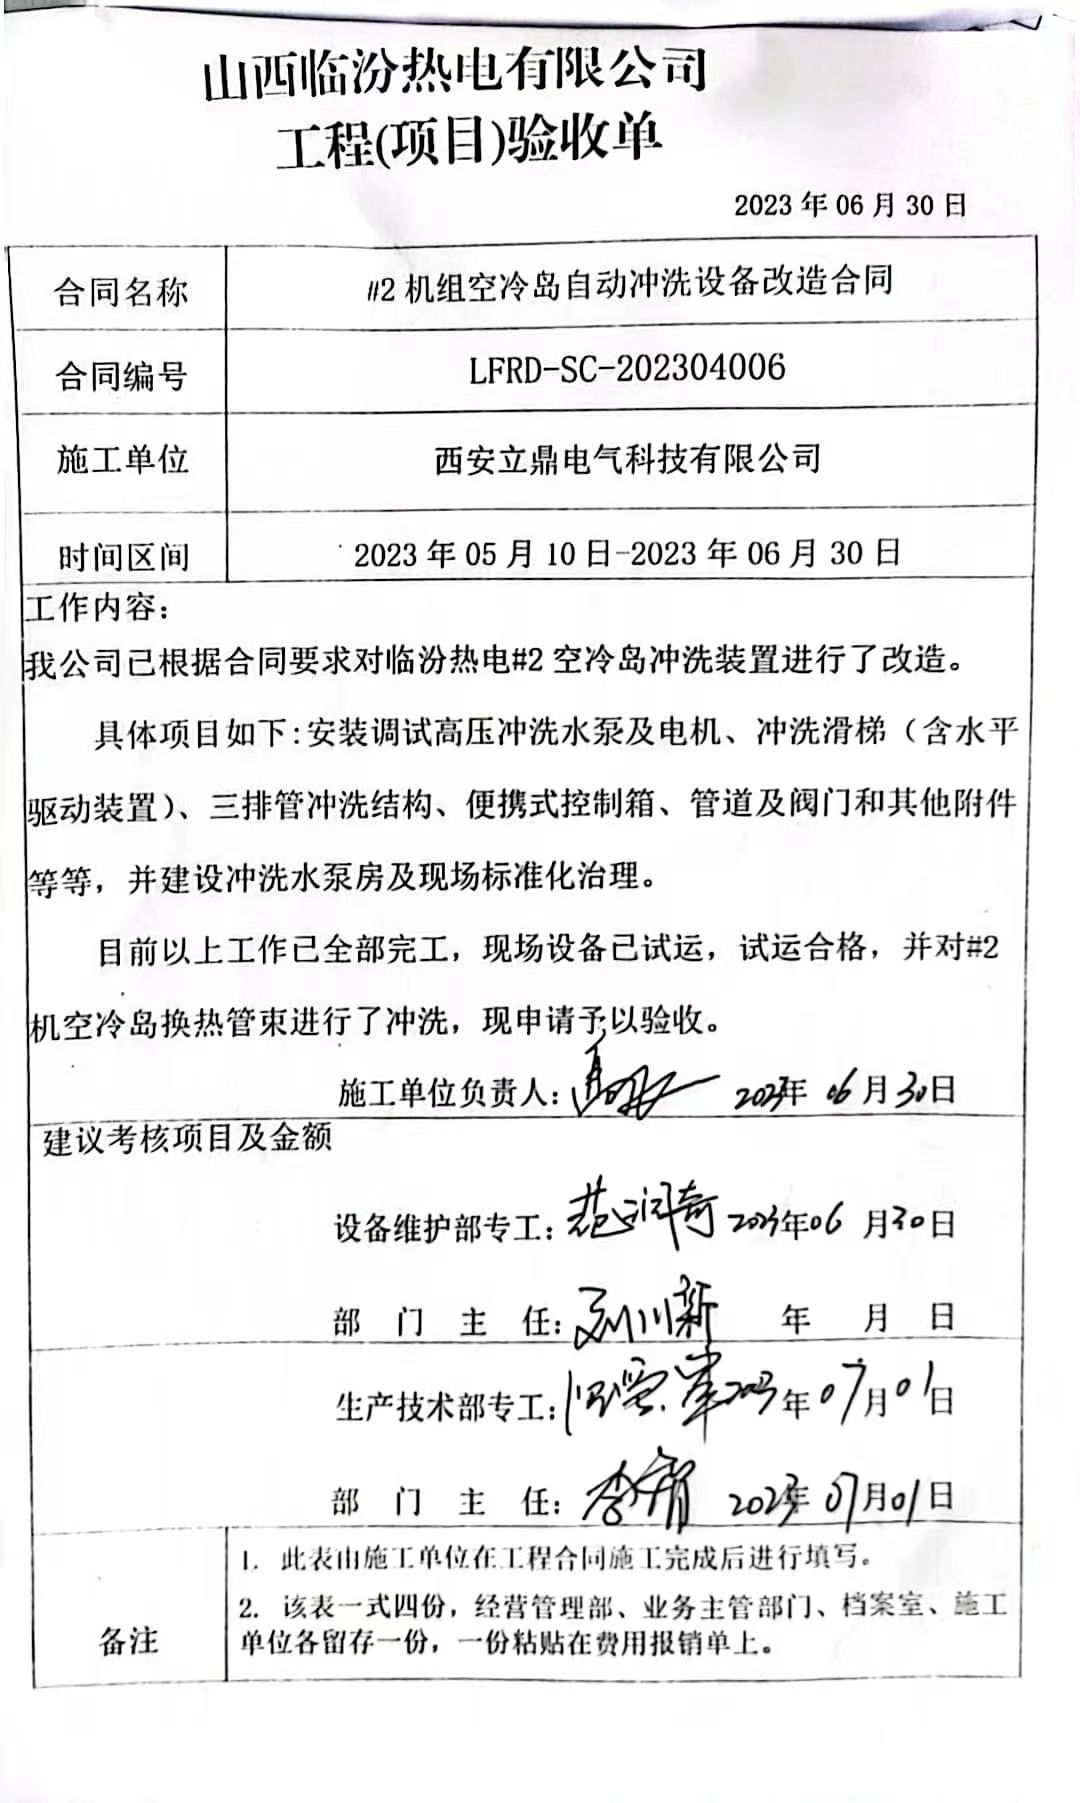 山西临汾热电有限公司
工程(项目)验收单
2023 年 06 月 30 日
合同名称 #2 机组空冷岛自动冲洗设备改造合同
合同编号 LFRD-SC-202304006
施工单位 西安立鼎电气科技有限公司
时间区间 2023 年 05 月 10 日-2023 年 06 月 30 日
工作内容:
我公司已根据合同要求对临汾热电#2 空冷岛冲洗装置进行了改造。
具体项目如下:安装调试高压冲洗水泵及电机、冲洗滑梯（含水平
驱动装置）、三排管冲洗结构、便携式控制箱、管道及阀门和其他附件
等等，并建设冲洗水泵房及现场标准化治理。
目前以上工作已全部完工，现场设备已试运，试运合格，并对#2
机空冷岛换热管束进行了冲洗，现申请予以验收。
施工单位负责人: 2023年 06 月 30日
建议考核项目及金额
设备维护部专工: 范润奇 2023年06 月30日
部 门 主 任: 新 年 月 日
生产技术部专工: 2023年07月01日
部 门 主 任: 李 2023年07月01日
备注
1. 此表由施工单位在工程合同施工完成后进行填写。
2. 该表一式四份，经营管理部、业务主管部门、档案室、施工
单位各留存一份，一份粘贴在费用报销单上。